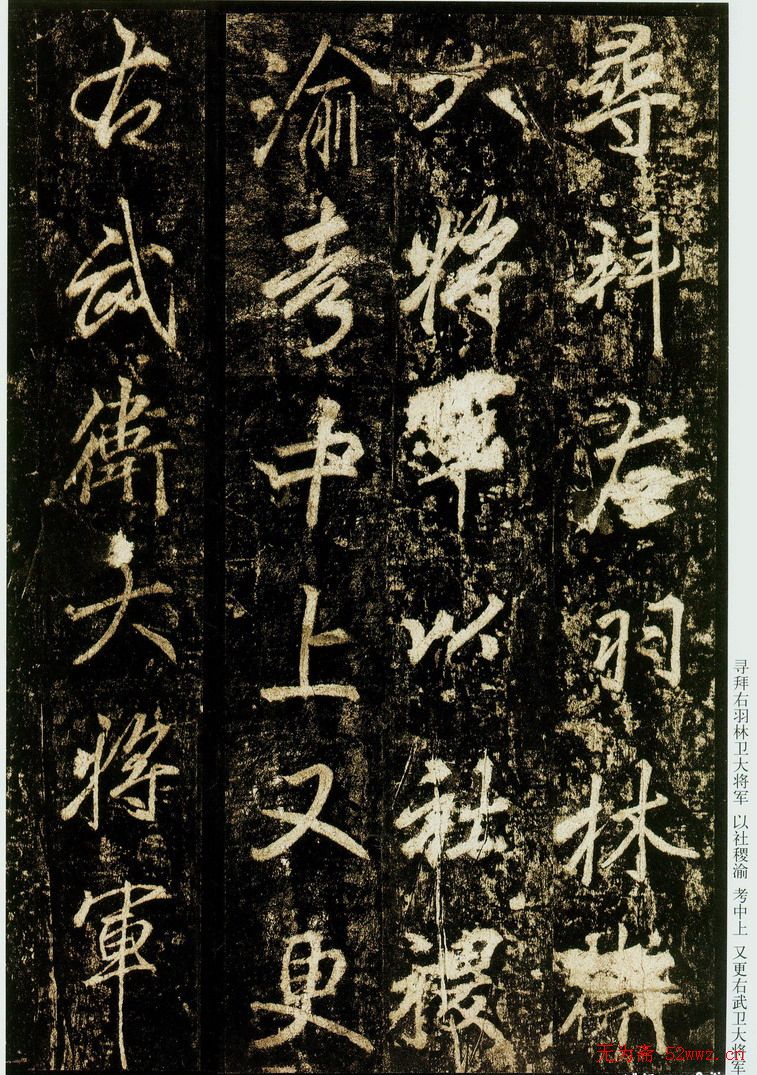 尋拜右羽林衛
大將軍以社稷
渝考中上又更
右武衛大將軍
寻拜右羽林卫大将军 以社稷渝 考中上 又更右武卫大将军
无为斋 52wwz.cn